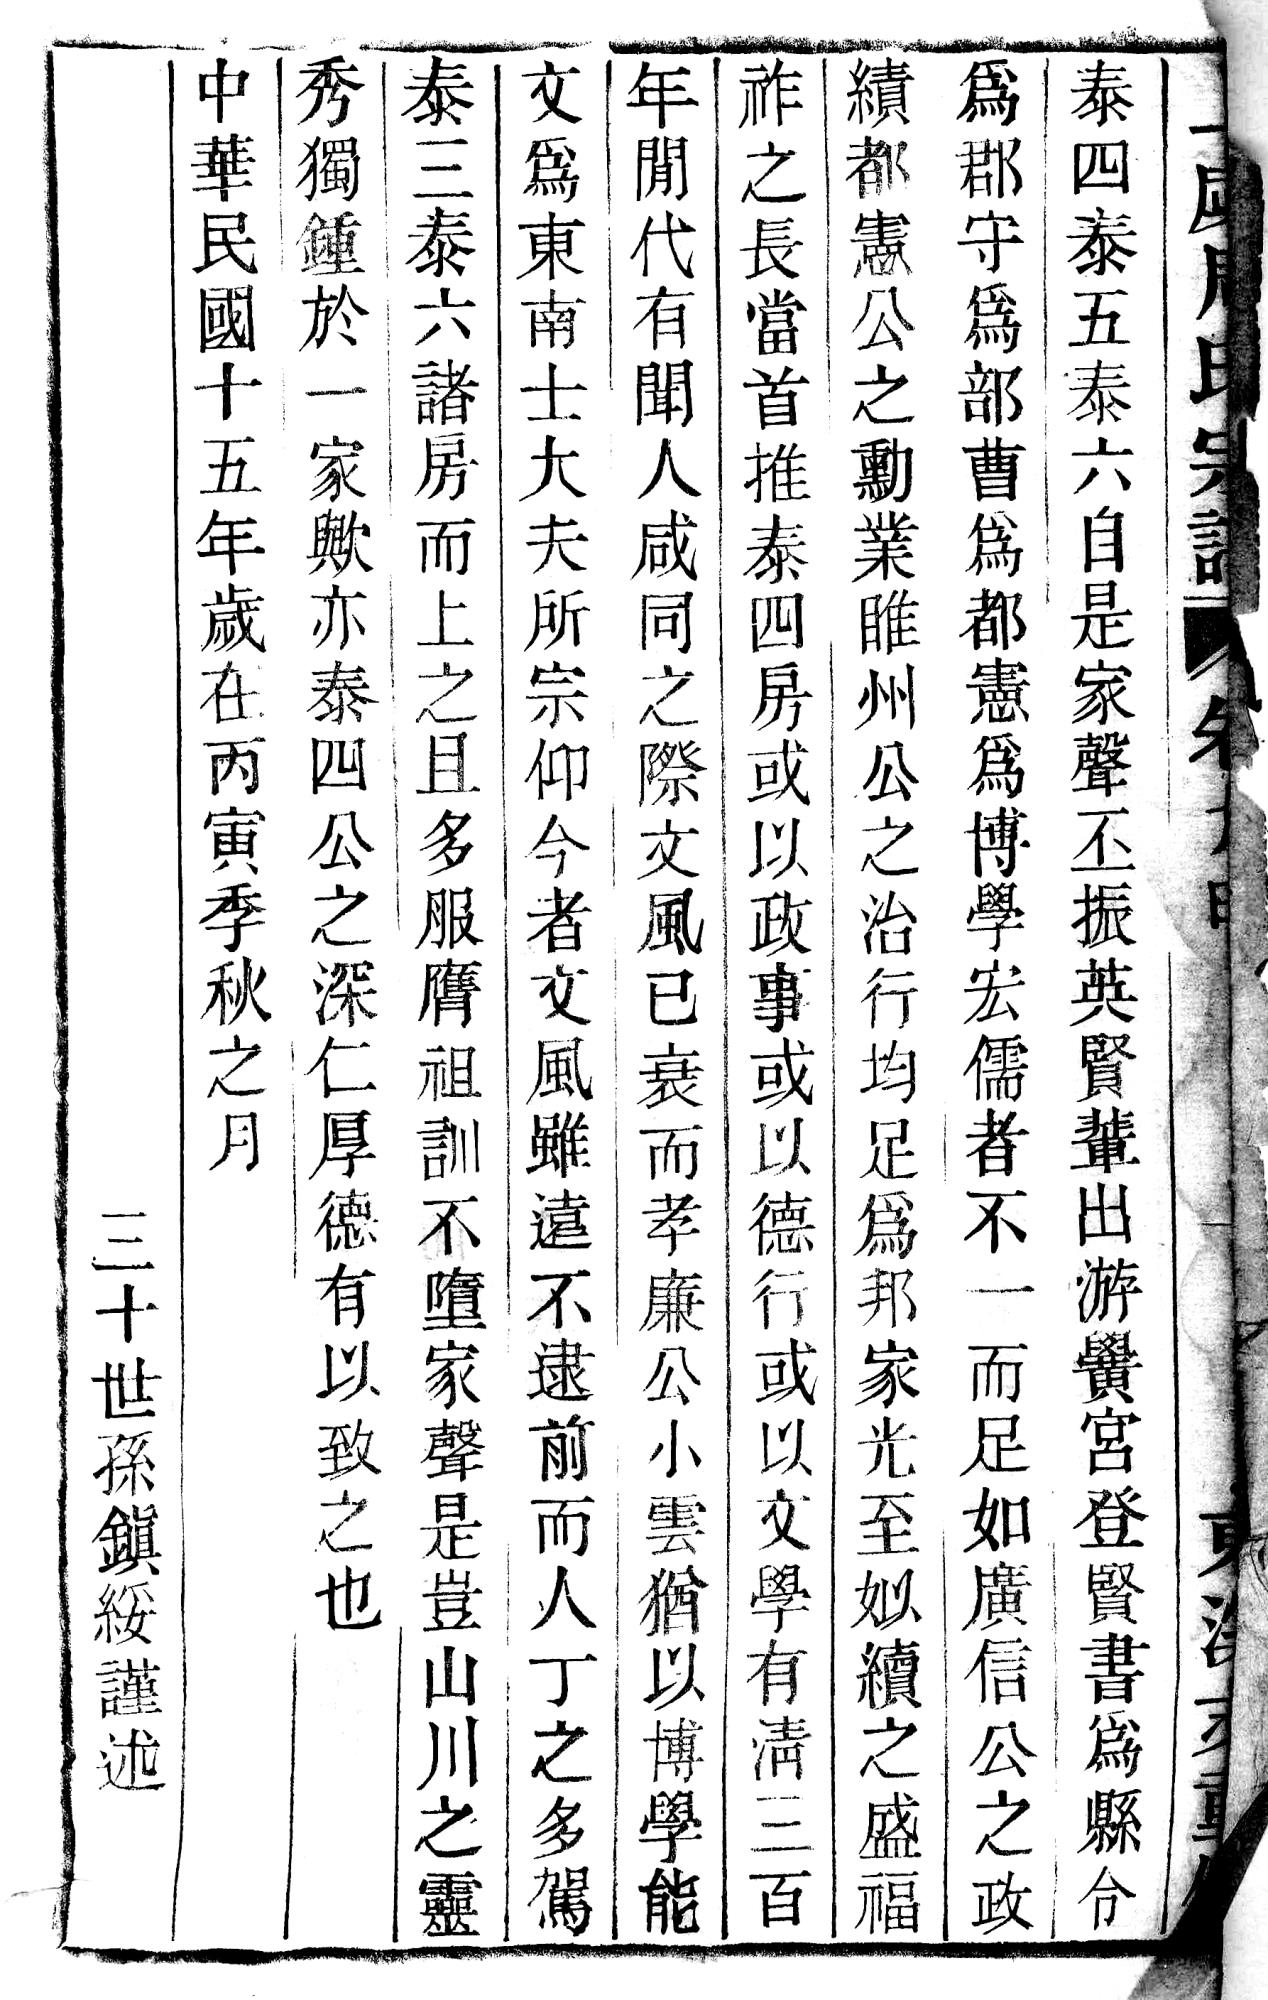 周氏宗譜
泰四泰五泰六自是家聲丕振英賢輩出游黌宮登賢書爲縣令
爲郡守爲部曹爲都憲爲博學宏儒者不一而足如廣信公之政
績都憲公之勳業睢州公之治行均足爲邦家光至姒續之盛福
祚之長當首推泰四房或以政事或以德行或以文學有淸三百
年閒代有聞人咸同之際文風已衰而孝廉公小雲猶以博學能
文爲東南士大夫所宗仰今者文風雖遠不逮前而人丁之多駕
泰三泰六諸房而上之且多服膺祖訓不墮家聲是豈山川之靈
秀獨鍾於一家歟亦泰四公之深仁厚德有以致之也
中華民國十五年歲在丙寅季秋之月
三十世孫鎭綏謹述